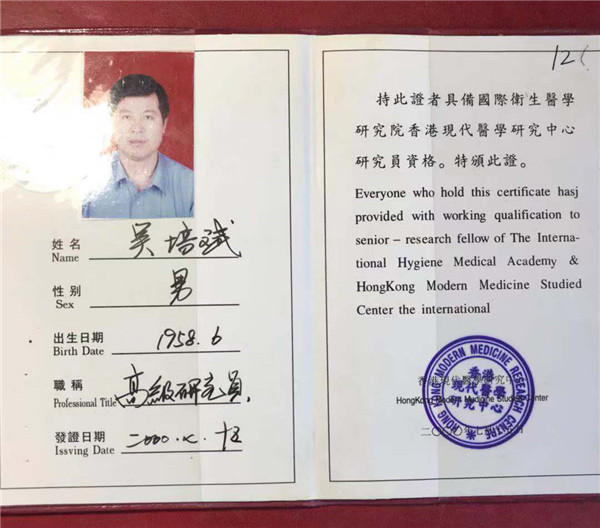 姓名
Name
吴培斌
性别
Sex
男
出生日期
Birth Date
1958.6
職稱
Professional Title
高级研究員
發證日期
Issving Date
二000.七.十五
12
持此證者具備國際衛生醫學
研究院香港現代醫學研究中心
研究員資格。特頒此證。
Everyone who hold this certificate hasj
provided with working qualification to
senior – research fellow of The Interna-
tional Hygiene Medical Academy &
HongKong Modern Medicine Studied
Center the international
HONG KONG MODERN MEDICINE RESEARCH CENTRE
香港
現代醫學
研究中心
HongKong Modern Medicine Studied Center